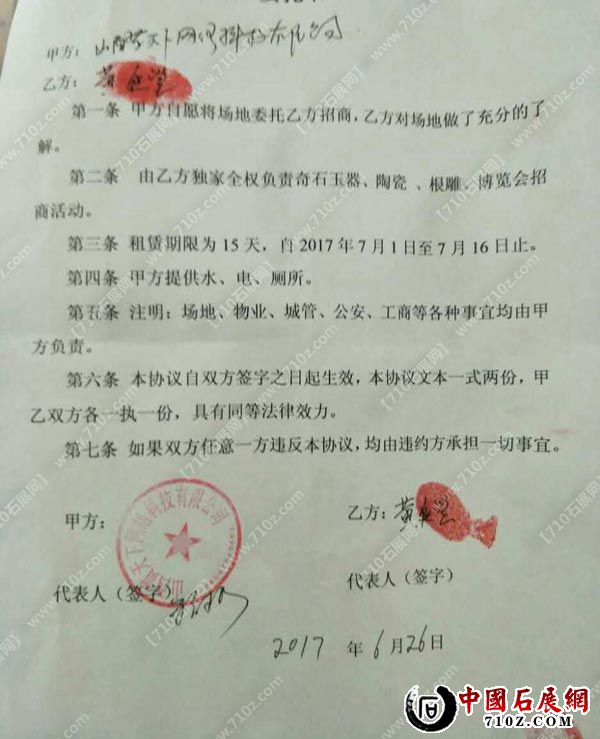 甲方：山西天下网络科技有限公司
乙方：黄
第一条 甲方自愿将场地委托乙方招商，乙方对场地做了充分的了
解。
第二条 由乙方独家全权负责奇石玉器、陶瓷、根雕、博览会招
商活动。
第三条 租赁期限为 15 天，自 2017 年 7 月 1 日至 7 月 16 日止。
第四条 甲方提供水、电、厕所。
第五条 注明：场地、物业、城管、公安、工商等各种事宜均由甲
方负责。
第六条 本协议自双方签字之日起生效，本协议文本一式两份，甲
乙双方各一执一份，具有同等法律效力。
第七条 如果双方任意一方违反本协议，均由违约方承担一切事宜。
甲方：
天下网络科技有限公司
乙方：黄
代表人（签字）
代表人（签字）
2017 年 6月26日
【710z石展网】www.710z.com
中國石展網
710Z.COM